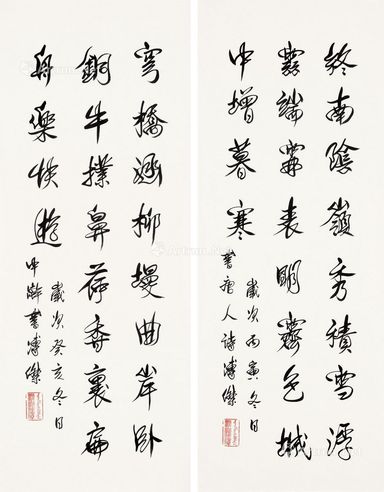 終南陰嶺秀積雪浮
雲端表明霽色城
中增暮寒
歲次丙寅冬日
書唐人詩溥傑
穹橋柳堤曲岸臥
銅牛撲鼻荷香裏扁
舟樂快遊
歲次癸亥冬月
中澣書溥傑